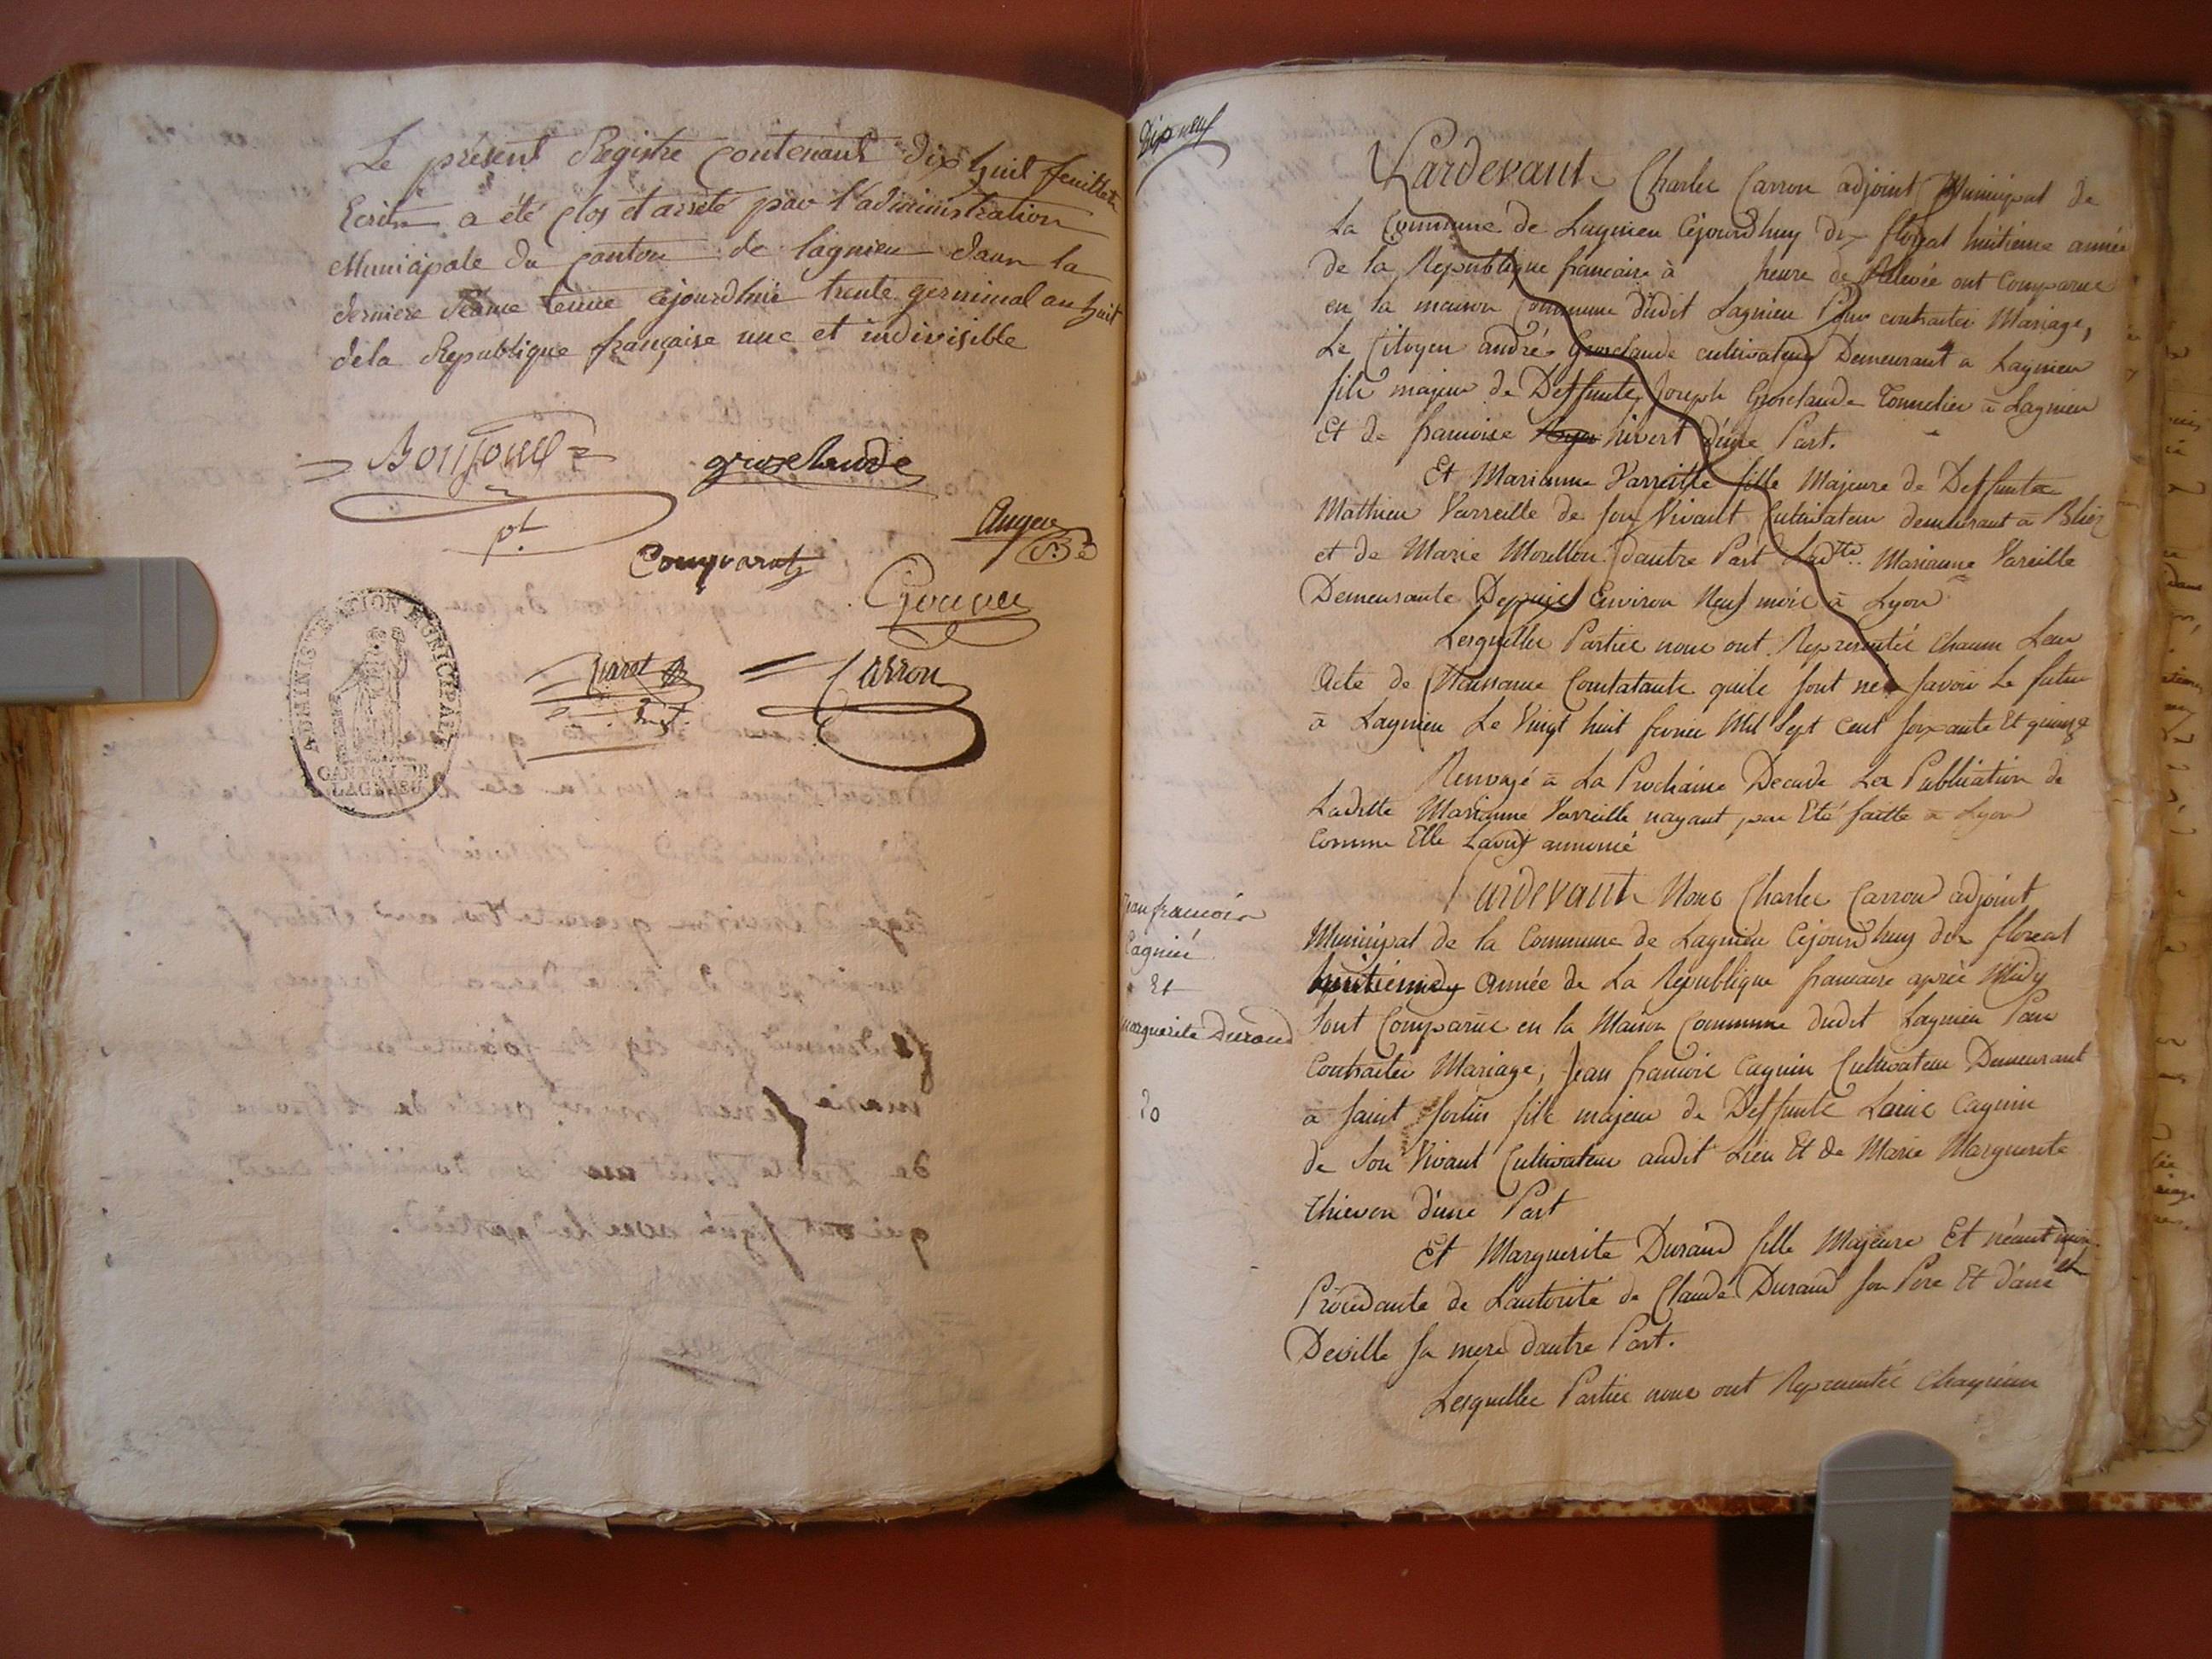 Le présent Registre Contenant dix huit feuillets
Ecrits a été clos et arrêté par l'administration
Municipale du Canton de lagnieu dans la
derniere séance tenue cejourdhui trente germinal an huit
dela Republique française une et indivisible
Bonjour
pt
grozelaude
Auger
Comparat
Carron
ADMINISTRATION MUNICIPALE
CANTON DE
LAGNIEU
Dix neuf
Pardevant Charles Carron adjoint Municipal de
La Commune de Lagnieu Cejourdhuy dix floreal huitieme année
de la Republique francaise à heure de Relevée ont Comparus
en la maison Commune dudit Lagnieu Pour contracter Mariage,
Le Citoyen andré Groselaude cultivateur Demeurant a Lagnieu
fils majeur de Deffunte Joseph Groselaude Tonnelier à Lagnieu
Et de francoise hivert d'une Part.
Et Marianne Varreille fille Majeure de Deffunte
Mathieu Varreille de son Vivant Cultivateur demeurant à
et de Marie Moullou dautre Part Ladtte Marianne Vareille
Demeurante Depuis Environ Neuf mois à Lyon
Lesquelles Parties nous ont Representés Chacun Leur
Acte de Naissance Constatante quils sont nés savoir Le futur
à Lagnieu Le Vingt huit fevrier Mil Sept Cent soixante Et quinze
Renvoyé à La Prochaine Decade Les Publication de
Ladite Marianne Varreille nayant pas Eté faitte à Lyon
Comme Elle Lavoit annoncé
Jean francois
Cagnin
Et
Marguerite Durand
Pardevant Nous Charles Carron adjoint
Municipal de la Commune de Lagnieu Cejourdhuy dix floreal
huitieme Année de La Republique francaise après Midy
Sont Comparus en la Maison Commune dudit Lagnieu Pour
Contracter Mariage, Jean francois Cagnin Cultivateur Demeurant
à saint sorlin fils majeur de Deffunte Louis Cagnin
de Son Vivant Cultivateur audit Lieu Et de Marie Marguerite
Thieven d'une Part
Et Marguerite Durand fille Majeure Et néantmoin
Procedante de Lautorité de Claude Durand son Père Et d'ane
Deville sa mere dautre Part.
Lesquelles Parties nous ont Representés Chaquun